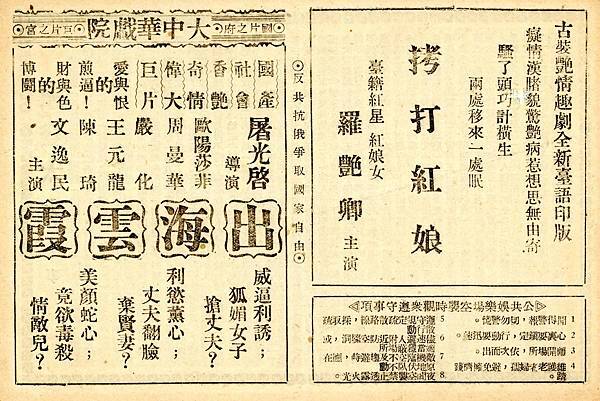 古裝艷情趣劇全新臺語印版
癡情漢賭貌驚艷病惹想思無由寄
騷了頭巧計橫生
兩處移來一處眠
拷打紅娘
臺籍紅星 紅娘女
羅艷卿 主演
公共娛樂場空襲時觀眾遵守事項
反共抗俄爭取國家自由
國片之府
大中華戲院
巨片之宮
國產
社會
香艷
奇情
偉大
巨片
屠光啓 導演
歐陽莎菲
周曼華
嚴化
王元龍
陳琦
文逸民
主演
愛與恨的煎逼!
財與色的博鬪!
出海雲霞
威逼利誘;
狐媚女子
搶丈夫?
利慾薰心;
丈夫翻臉
棄賢妻?
美顏蛇心;
竟欲毒殺
情敵兒?